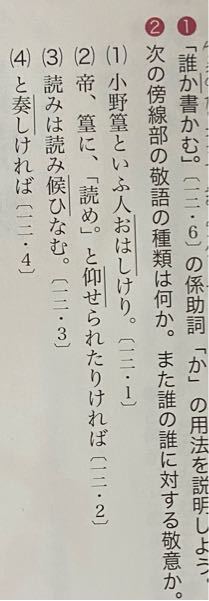 ❶「誰か書かむ。」〔一二・6〕の係助詞「か」の用法を説明しよう。
❷次の傍線部の敬語の種類は何か。また誰の誰に対する敬意か。
(1)小野篁といふ人おはしけり。〔一二・1〕
(2)帝、篁に、「読め。」と仰せられたりければ〔一二・2〕
(3)読みは読み候ひなむ。〔一二・3〕
(4)と奏しければ〔一二・4〕